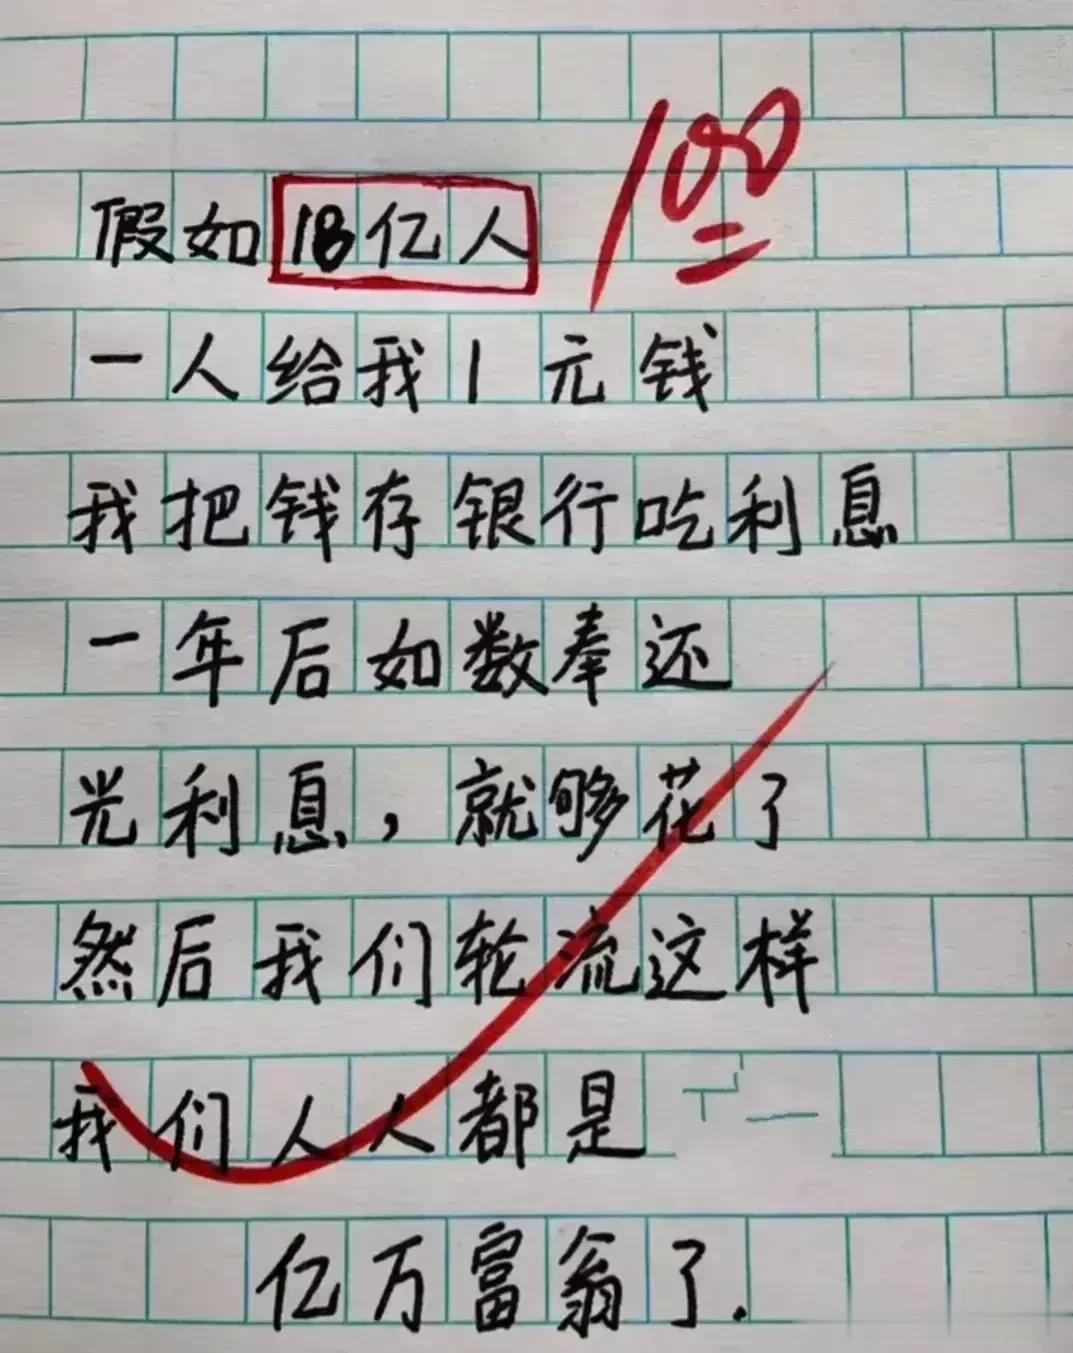 100
假如18亿人
一人给我1元钱
我把钱存银行吃利息
一年后如数奉还
光利息，就够花了
然后我们轮流这样
我们人人都是
亿万富翁了.